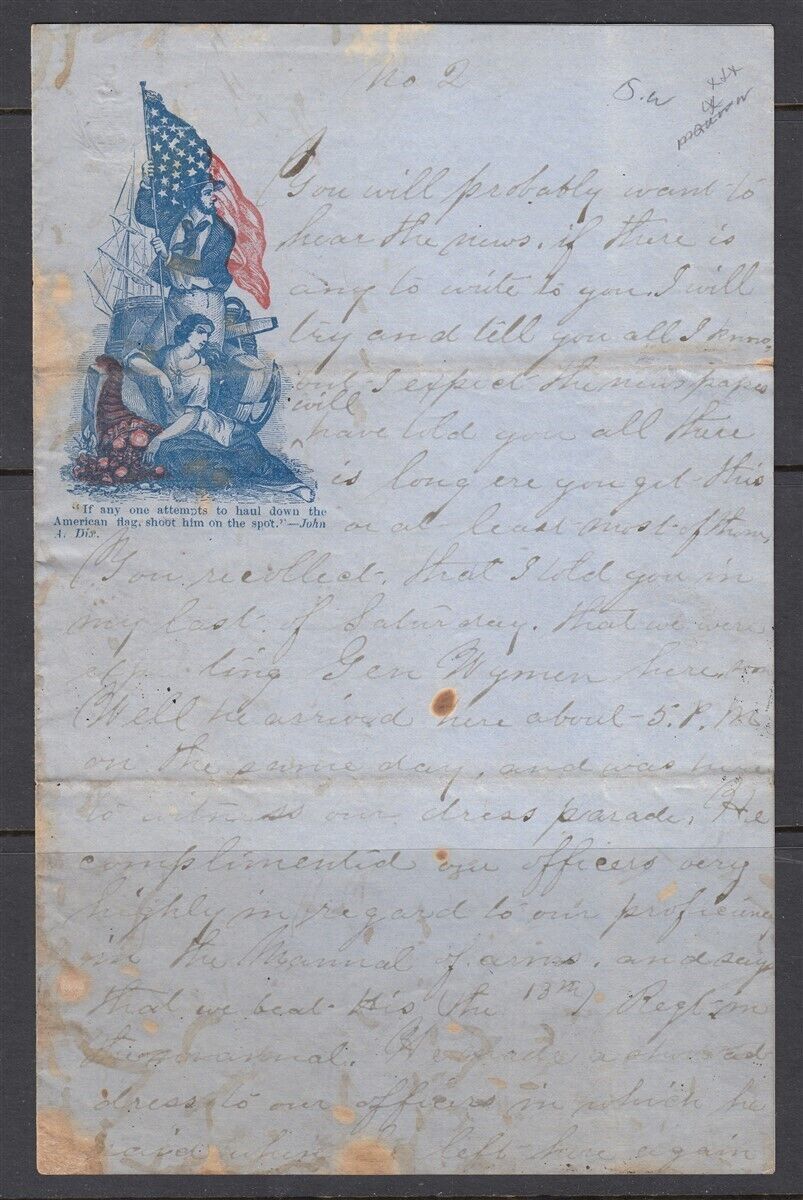 No 2
You will probably want to
hear the news, if there is
any to write to you. I will
try and tell you all I know,
but I expect the news paper
will
have told you all there
is long ere you get this
or at least most of them,
You recollect, that I told you in
my last of Saturday, that we were
expecting Gen Wymen here,
Well he arrived here about 5. P. M
on the same day, and was here
to witness our dress parade, He
complimentid our officers very
highly in regard to our proficiency
in the Mannal of arms, and say
that we beat His (the 13th) Regt in
the mannal. He made a short ad
dress to our officers in which he
said when he left here again
"If any one attempts to haul down the
American flag, shoot him on the spot."—John
A. Dix.